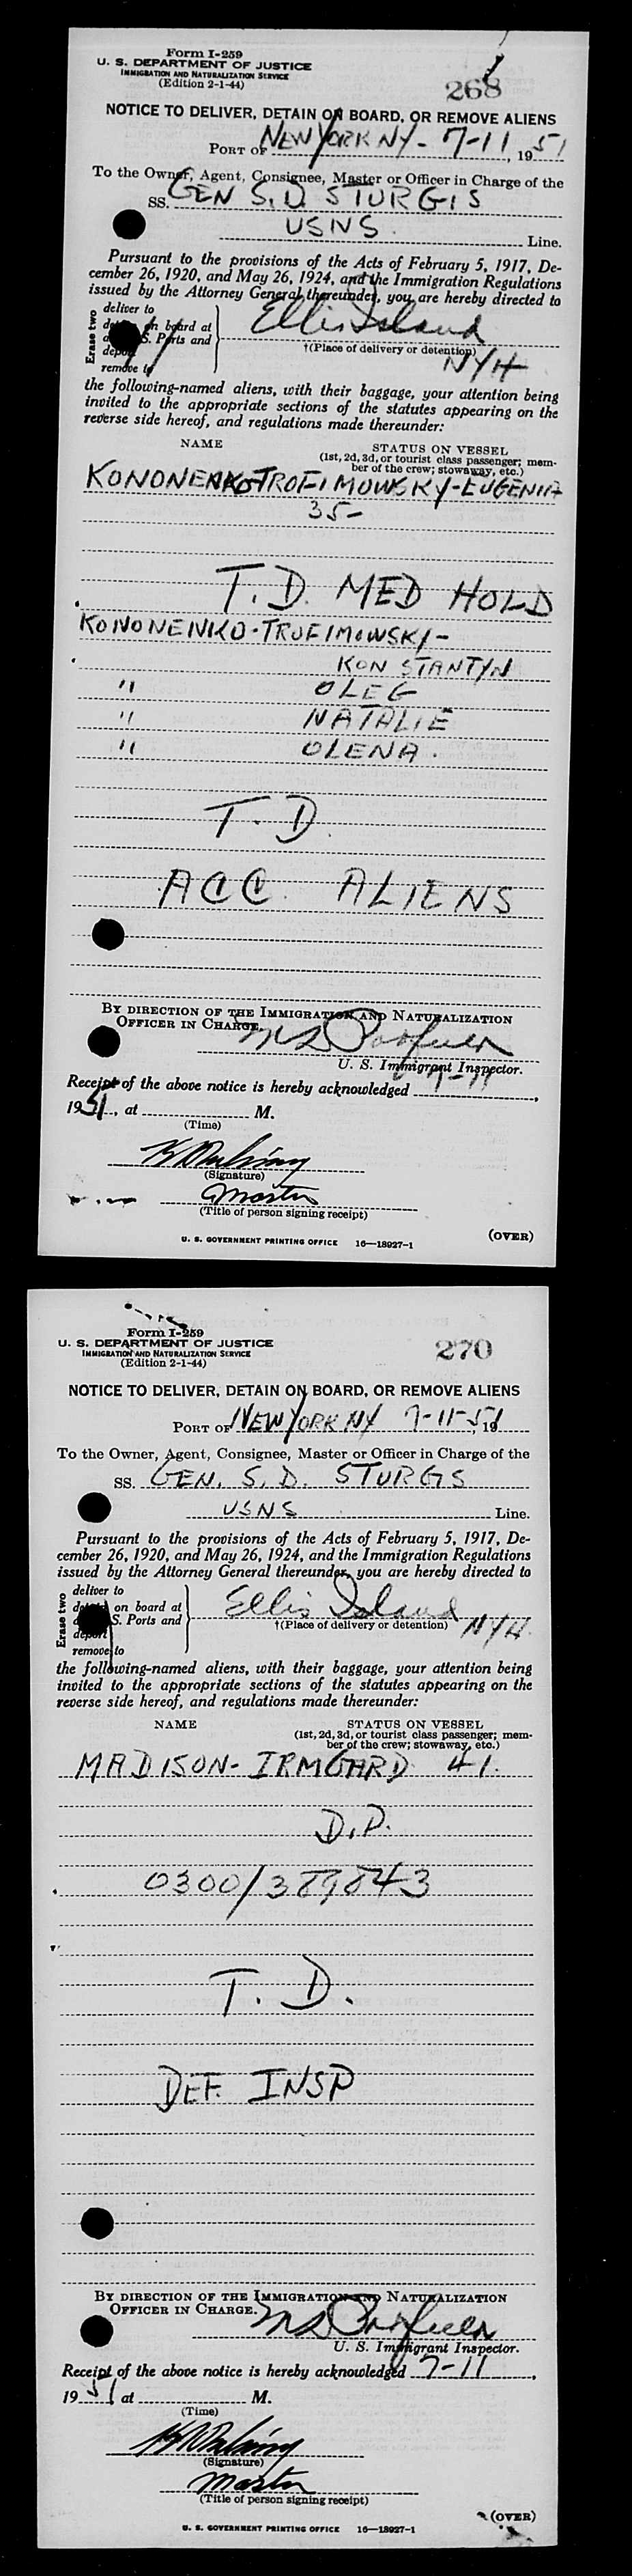 Form I-259
U. S. DEPARTMENT OF JUSTICE
IMMIGRATION AND NATURALIZATION SERVICE
(Edition 2-1-44)
268
NOTICE TO DELIVER, DETAIN ON BOARD, OR REMOVE ALIENS
PORT OF NEW YORK NY - 7-11, 1951
To the Owner, Agent, Consignee, Master or Officer in Charge of the
SS. GEN S. D. STURGIS
USNS Line.
Pursuant to the provisions of the Acts of February 5, 1917, De-
cember 26, 1920, and May 26, 1924, and the Immigration Regulations
issued by the Attorney General thereunder, you are hereby directed to
Erase two
deliver to
on board at
S. Ports and
remove to
Ellis Island
†(Place of delivery or detention)
NYH
the following-named aliens, with their baggage, your attention being
invited to the appropriate sections of the statutes appearing on the
reverse side hereof, and regulations made thereunder:
NAME STATUS ON VESSEL
(1st, 2d, 3d, or tourist class passenger; mem-
ber of the crew; stowaway, etc.)
KONONENKO-TROFIMOWSKY-EUGENIA
35-
T.D. MED HOLD
KONONENKO-TROFIMOWSKY-
KONSTANTYN
" OLEG
" NATALIE
" OLENA.
T.D.
ACC. ALIENS
BY DIRECTION OF THE IMMIGRATION AND NATURALIZATION
OFFICER IN CHARGE.
U. S. Immigrant Inspector.
Receipt of the above notice is hereby acknowledged 7-11,
1951, at M.
(Time)
(Signature)
Master
(Title of person signing receipt)
U. S. GOVERNMENT PRINTING OFFICE 16—18927-1
(OVER)
Form I-259
U. S. DEPARTMENT OF JUSTICE
IMMIGRATION AND NATURALIZATION SERVICE
(Edition 2-1-44)
270
NOTICE TO DELIVER, DETAIN ON BOARD, OR REMOVE ALIENS
PORT OF NEW YORK NY 7-11-51, 19
To the Owner, Agent, Consignee, Master or Officer in Charge of the
SS. GEN. S. D. STURGS
USNS Line.
Pursuant to the provisions of the Acts of February 5, 1917, De-
cember 26, 1920, and May 26, 1924, and the Immigration Regulations
issued by the Attorney General thereunder, you are hereby directed to
Erase two
deliver to
on board at
S. Ports and
deport
remove to
Ellis Island
†(Place of delivery or detention)
NYH
the following-named aliens, with their baggage, your attention being
invited to the appropriate sections of the statutes appearing on the
reverse side hereof, and regulations made thereunder:
NAME STATUS ON VESSEL
(1st, 2d, 3d, or tourist class passenger; mem-
ber of the crew; stowaway, etc.)
MADISON-IRMGARD 41.
D.P.
0300/389843
T. D.
DEF. INSP
BY DIRECTION OF THE IMMIGRATION AND NATURALIZATION
OFFICER IN CHARGE.
U. S. Immigrant Inspector.
Receipt of the above notice is hereby acknowledged 7-11,
1951 at M.
(Time)
(Signature)
Master
(Title of person signing receipt)
(OVER)
U. S. GOVERNMENT PRINTING OFFICE 16—18927-1